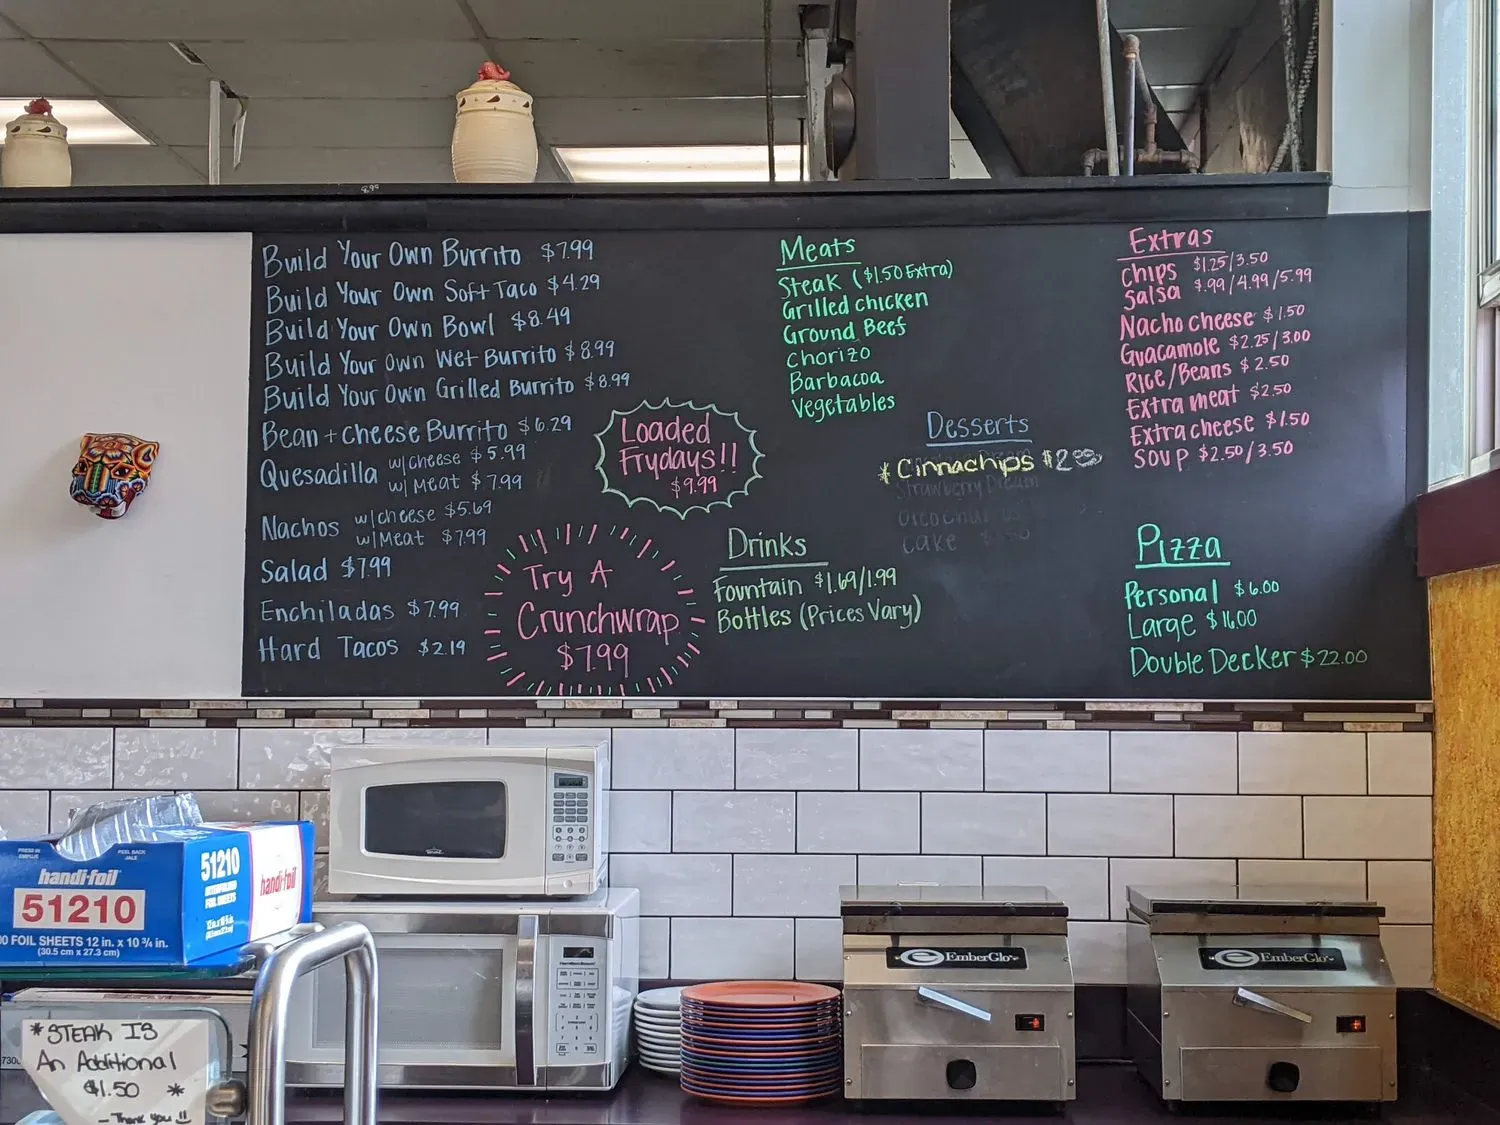 8.99
Build Your Own Burrito $7.99
Build Your Own Soft Taco $4.29
Build Your Own Bowl $8.49
Build Your Own Wet Burrito $8.99
Build Your Own Grilled Burrito $8.99
Bean + cheese Burrito $6.29
Quesadilla w/cheese $5.99
w/ Meat $7.99
Nachos w/cheese $5.69
w/Meat $7.99
Salad $7.99
Enchiladas $7.99
Hard Tacos $2.19
Loaded
Frydays!!
$9.99
Try A
Crunchwrap
$7.99
Meats
Steak ($1.50 Extra)
Grilled chicken
Ground Beef
Chorizo
Barbacoa
Vegetables
Drinks
Fountain $1.69/1.99
Bottles (Prices Vary)
Desserts
* Cinnachips $2.00
Strawberry Dream
Cake
Extras
Chips $1.25/3.50
Salsa $.99/4.99/5.99
Nacho cheese $1.50
Guacamole $2.25/3.00
Rice/Beans $2.50
Extra meat $2.50
Extra cheese $1.50
Soup $2.50/3.50
Pizza
Personal $6.00
Large $16.00
Double Decker $22.00
PRESS IN
PEEL BACK
handi-foil
51210
FOIL SHEETS 12 in. x 10 3/4 in.
(30.5 cm x 27.3 cm)
51210
handi-foil
*STEAK IS
An Additional
$1.50 *
- Thank you!!
EmberGlo
EmberGlo